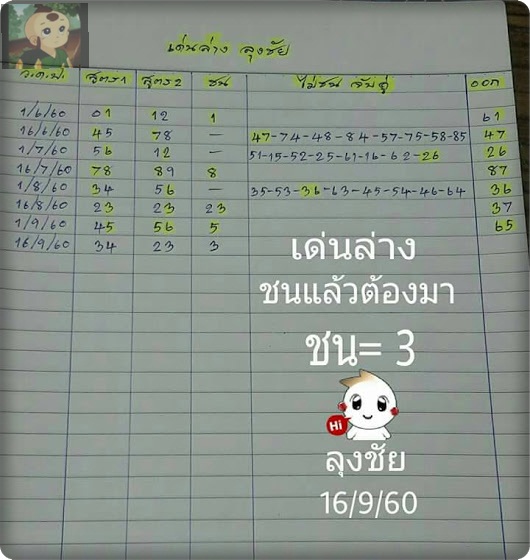 เด่นล่าง ลุงชัย
ว.ด.ป. สูตร1 สูตร2 ชน ไม่ชน จับคู่ ออก
1/6/60 01 12 1 61
16/6/60 45 78 — 47-74-48-84-57-75-58-85 47
1/7/60 56 12 — 51-15-52-25-61-16-62-26 26
16/7/60 78 89 8 87
1/8/60 34 56 — 35-53-36-63-45-54-46-64 36
16/8/60 23 23 23 37
1/9/60 45 56 5 65
16/9/60 34 23 3
เด่นล่าง
ชนแล้วต้องมา
ชน= 3
Hi
ลุงชัย
16/9/60